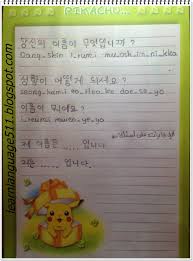 PIKACHU...
당신의 이름이 무엇입니까?
Dang_shin i_rumi mu_osh_im_ni_kka
성함이 어떻게 되세요?
seong_hami eo_tteo_ke doe_se_yo
이름이 뭐에요?
i_reumi mwo_e_yo
제 이름은 ... 입니다
저는 ..... 입니다.
learnlanguage511.blogspot.com